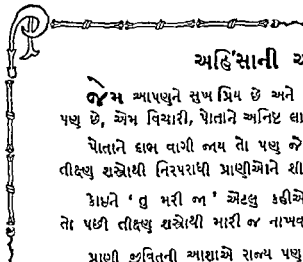 અહિંસાની
જેમ આપણુને સુખ પ્રિય છે અને
પણ છે, એમ વિચારી, પોતાને અનિષ્ટ લા
પોતાને ડાભ વાગી જાય તો પણુ જે
તીક્ષ્ણ શસ્ત્રોથી નિરપરાધી પ્રાણીઓને શી
કોઇને ‘ તુ મરી જા ’ એટલુ કહીએ
તો પછી તીક્ષ્ણ શસ્ત્રોથી મારી જ નાખવ
પ્રાણી જીવિતની આશાએ રાજ્ય પણુ